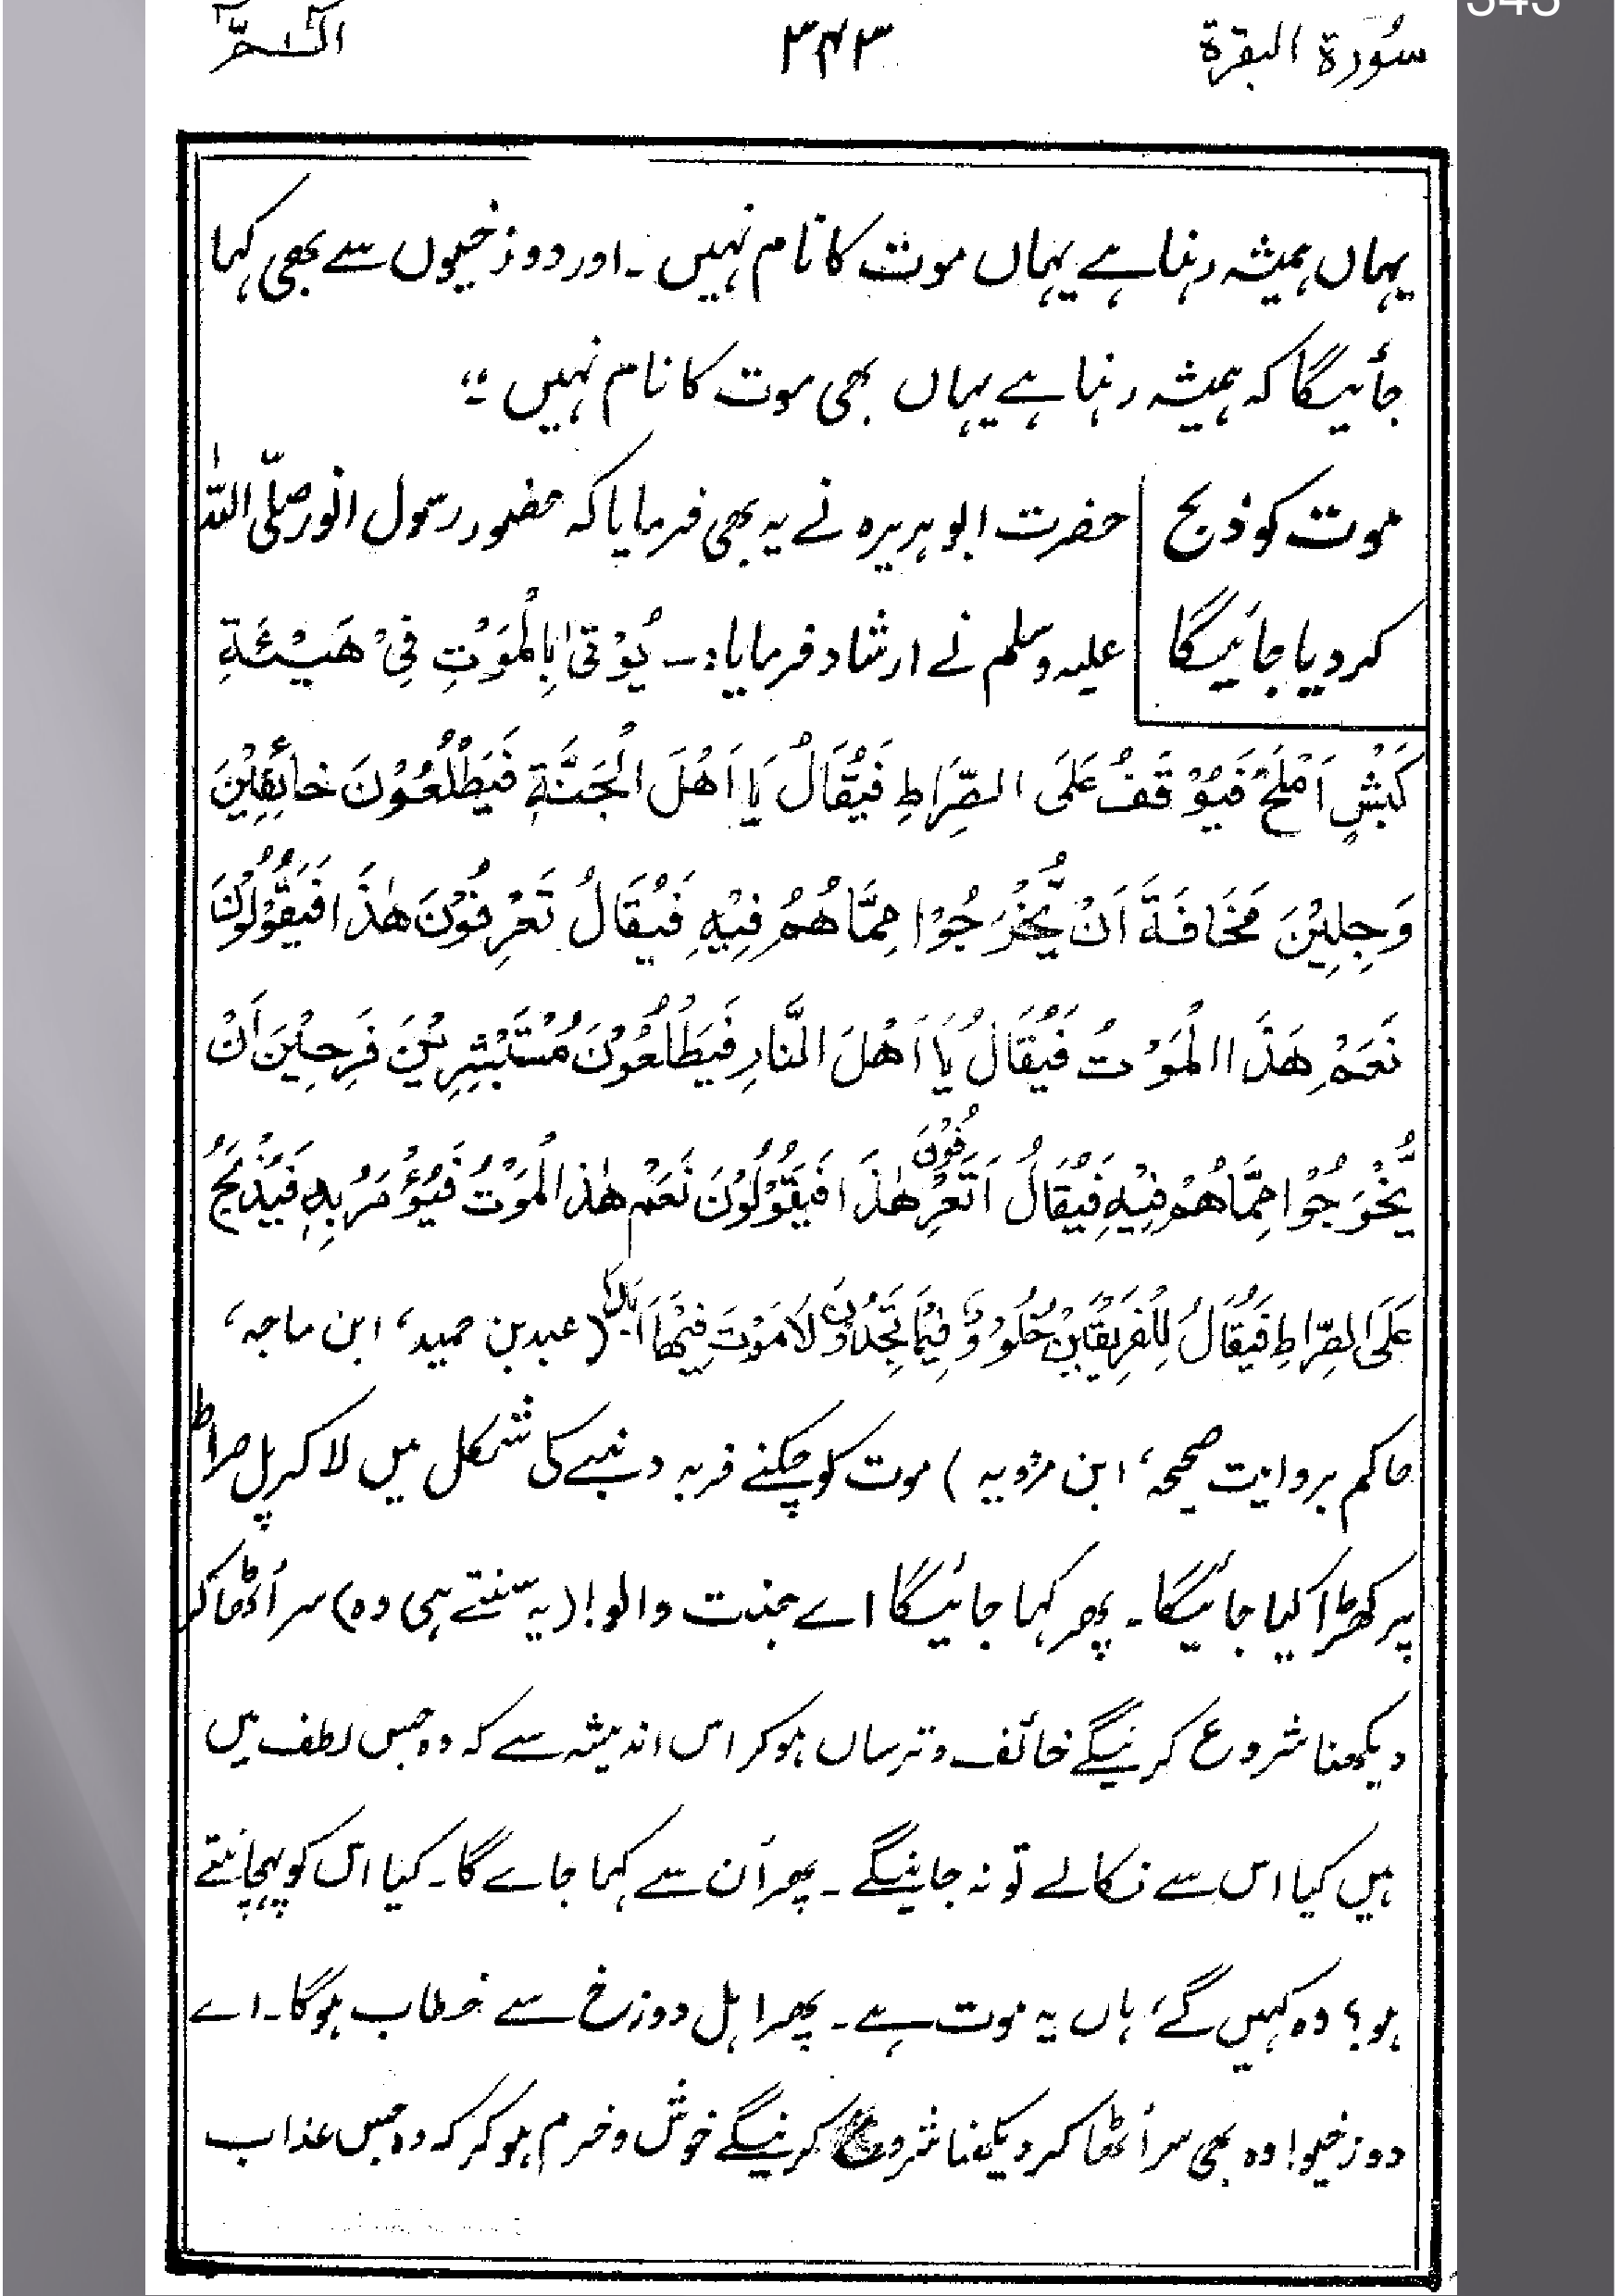 سُورة البقرة ۳۴۳ الٓـــمّٓ
یہاں ہمیشہ رہنا ہے یہاں موت کا نام نہیں ۔ اور دوزخیوں سے بھی کہا
جائیگا کہ ہمیشہ رہنا ہے یہاں بھی موت کا نام نہیں ؛؛
موت کو ذبح
کردیا جائیگا
حضرت ابو ہریرہ نے یہ بھی فرمایا کہ حضور رسول انور صلّی اللہ
علیہ وسلم نے ارشاد فرمایا :۔ یُوْتٰی بِالْمَوْتِ فِیْ هَیْئَةِ
کَبْشٍ اَمْلَحَ فَیُوْقَفُ عَلَی الصِّرَاطِ فَیُقَالُ یَا اَهْلَ الْجَنَّةِ فَیَطْلُعُوْنَ خَائِفِیْنَ
وَجِلِیْنَ مَخَافَةَ اَنْ یُّخْرَجُوْا مِمَّا هُمْ فِیْهِ فَیُقَالُ تَعْرِفُوْنَ هٰذَا فَیَقُوْلُوْنَ
نَعَمْ هَذَا الْمَوْتُ فَیُقَالُ یَا اَهْلَ النَّارِ فَیَطْلُعُوْنَ مُسْتَبْشِرِیْنَ فَرِحِیْنَ اَنْ
یُّخْرَجُوْا مِمَّا هُمْ فِیْهِ فَیُقَالُ اَتَعْرِفُوْنَ هٰذَا فَیَقُوْلُوْنَ نَعَمْ هٰذَا الْمَوْتُ فَیُؤْمَرُ بِهٖ فَیُذْبَحُ
عَلَی الصِّرَاطِ فَیُقَالُ لِلْفَرِیْقَیْنِ خُلُوْدٌ فِیْمَا تَجِدُوْنَ لَا مَوْتَ فِیْهَا اَبَدًا (عبد بن حمید، ابن ماجہ،
حاکم بروایت صحیحہ، ابن مردویہ ) موت کو چکنے فربہ دنبے کی شکل میں لاکر پل صراط
پر کھڑا کیا جائیگا ۔ پھر کہا جائیگا اے جنت والو! (یہ سنتے ہی وہ) سر اُٹھاکر
دیکھنا شروع کرینگے خائف و ترساں ہوکر اس اندیشہ سے کہ وہ جس لطف میں
ہیں کیا اس سے نکالے تو نہ جاینگے ۔ پھر اُن سے کہا جاے گا ۔ کیا اس کو پہچانتے
ہو؟ وہ کہیں گے، ہاں یہ موت ہے ۔ پھر اہل دوزخ سے خطاب ہوگا ۔ اے
دوزخیو! وہ بھی سر اُٹھاکر دیکھنا شروع کرینگے خوش و خرم ہوکر کہ وہ جس عذاب